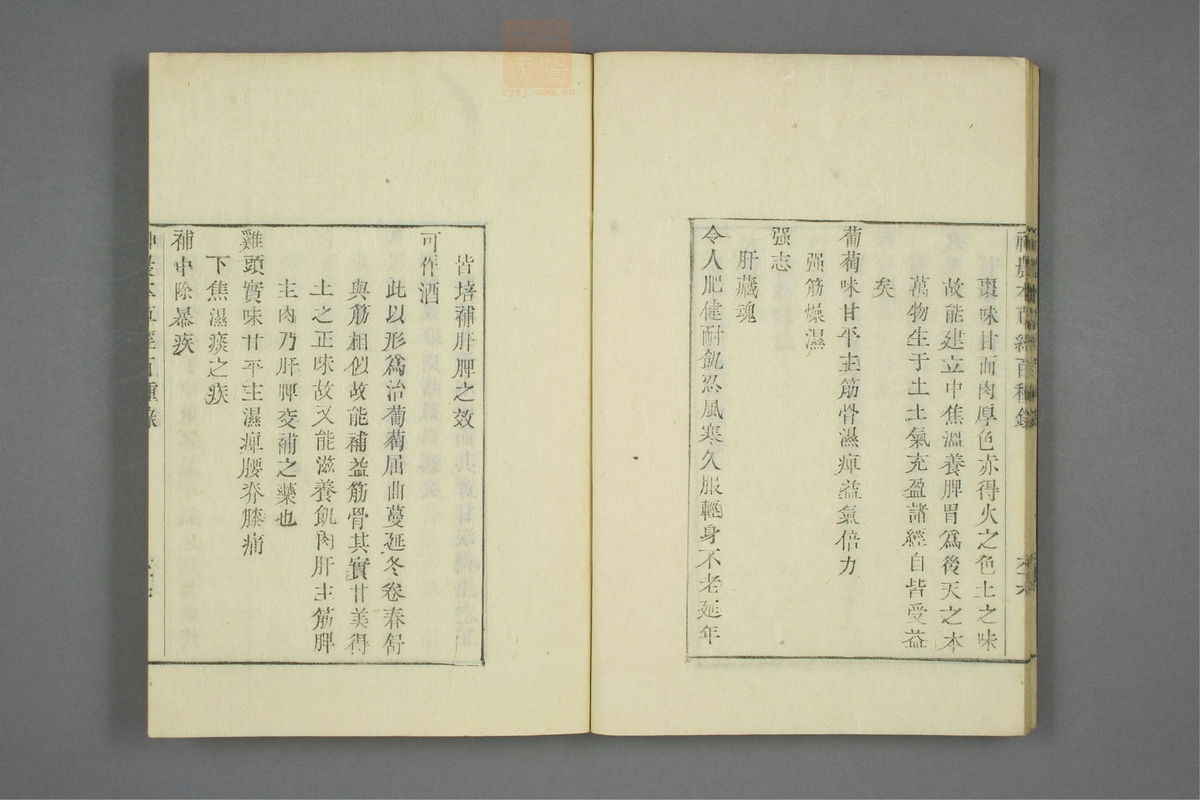 神農本草經百種錄
六六
棗味甘而肉厚色赤得火之色土之味
故能建立中焦溫養脾胃爲後天之本
萬物生于土土氣充盈諸經自皆受益
矣
葡萄味甘平主筋骨濕痺益氣倍力
强筋燥濕
强志
肝藏魂
令人肥健耐飢忍風寒久服輕身不老延年
皆培補肝脾之效
可作酒
此以形爲治葡萄屈曲蔓延冬卷春舒
與筋相似故能補益筋骨其實甘美得
土之正味故又能滋養飢肉肝主筋脾
主肉乃肝脾交補之藥也
雞頭實味甘平主濕痺腰脊膝痛
下焦濕痰之疾
補中除暴疾
神農本草經百種錄
zysj.com.cn